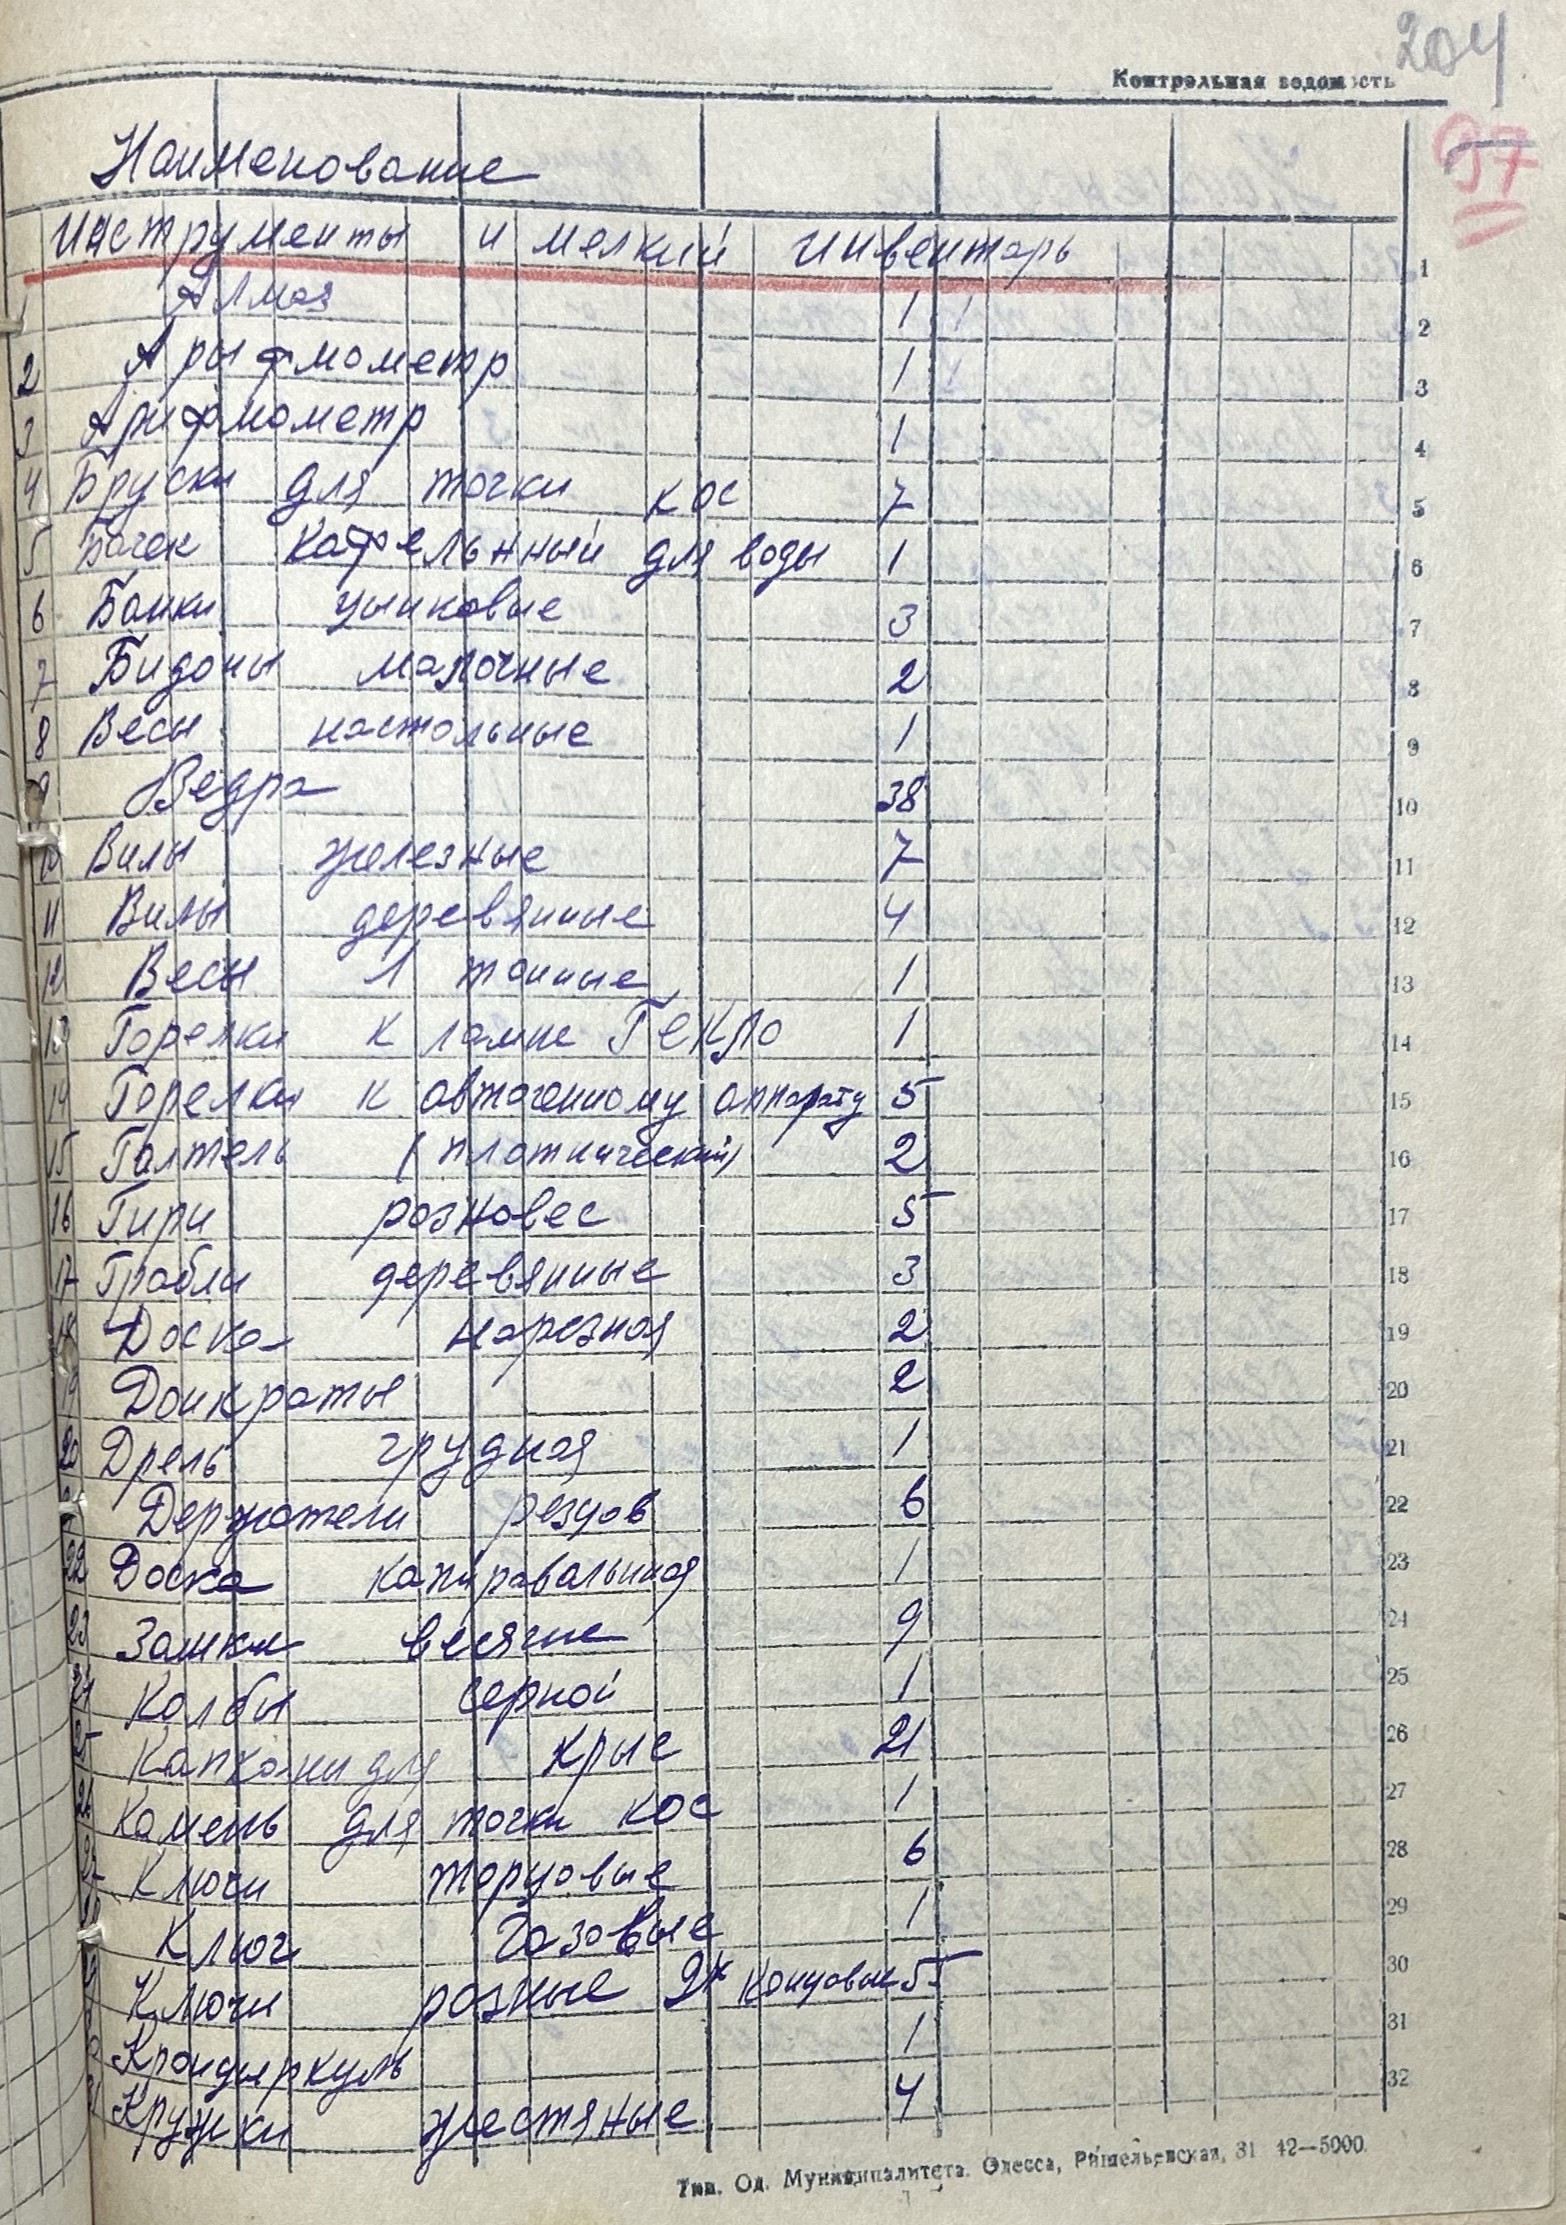 204
Контрольная ведомость
97
Наименование
Инструменты и мелкий инвентарь 1
Алмаз 1 2
2 Арыфмометр 1 3
3 Арифмометр 1 4
4 Бруски для точки кос 7 5
5 Бачек кафельнный для воды 1 6
6 Банки цынковые 3 7
7 Бидоны малочные 2 8
8 Весы настольные 1 9
9 Ведра 38 10
10 Вилы железные 7 11
11 Вилы деревянные 4 12
12 Весы 1 тонные 1 13
13 Горелки к лампе Гекло 1 14
14 Горелки к автогенному аппарату 5 15
15 Галтель (плотнический) 2 16
16 Гири розновес 5 17
17 Грабли деревянные 3 18
18 Доска нарезная 2 19
19 Домкраты 2 20
20 Дрель грудная 1 21
Держатели резцов 6 22
22 Доска 1 23
23 Замки весячие 9 24
24 Колбы серной 1 25
25 Капканы для крыс 21 26
26 Камень для точки кос 1 27
27 Ключи торцовые 6 28
Ключ Газовые 1 29
Ключи розные 2х концовые 5 30
Кронциркуль 1 31
31 Кружки жестяные 4 32
Тип. Од. Муниципалитета. Одесса, Ришельевская, 31 42—5000